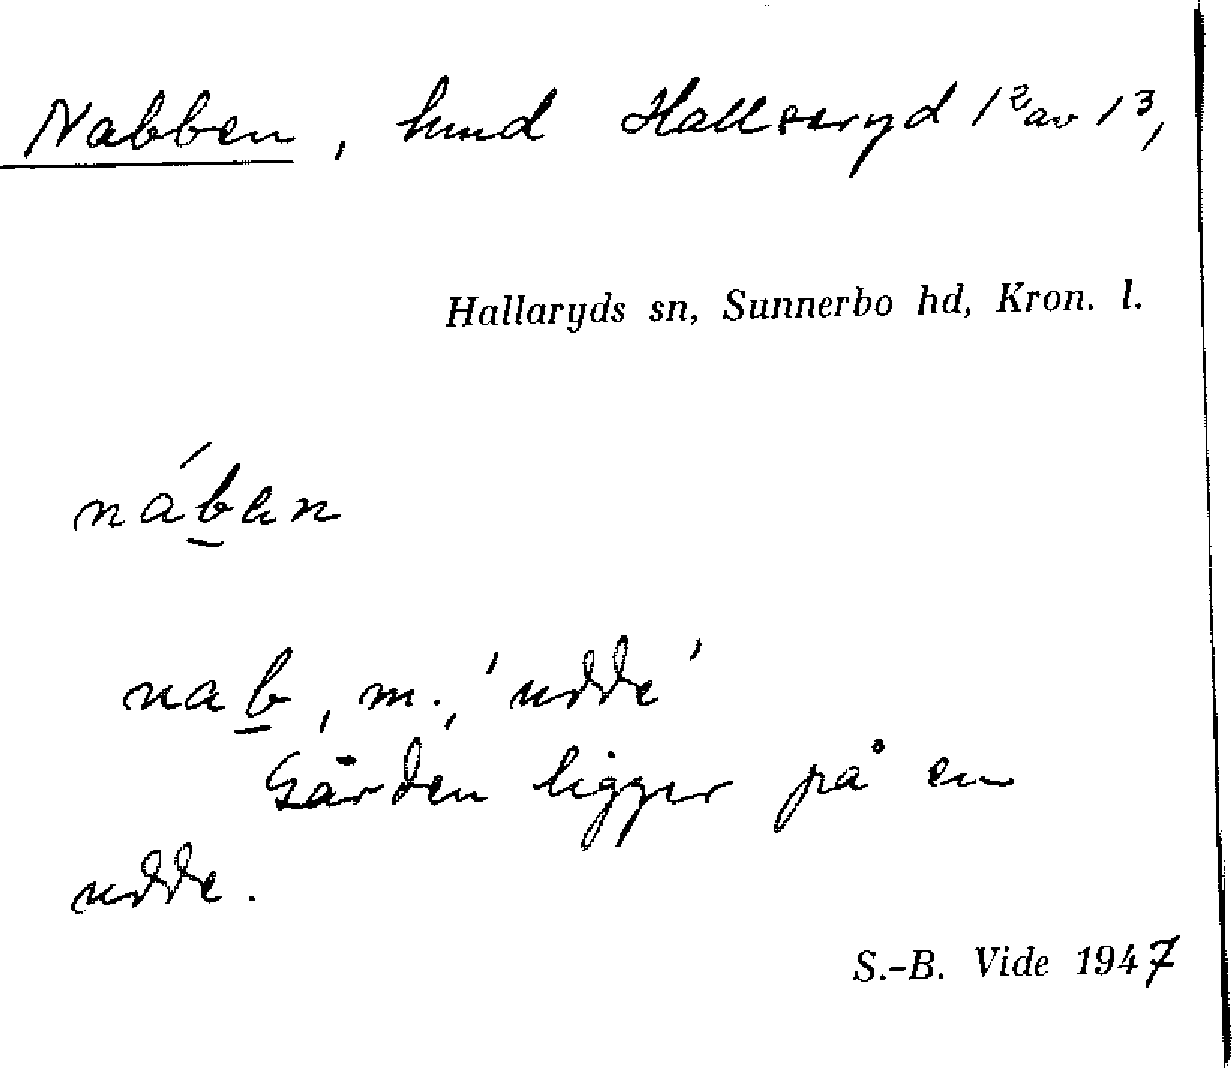 Nabben, hmd Hallseryd 1² av 1³,
Hallaryds sn, Sunnerbo hd, Kron. l.
náb̲en
nab̲, m., 'udde'
Gården ligger på en
udde.
S.-B. Vide 1947